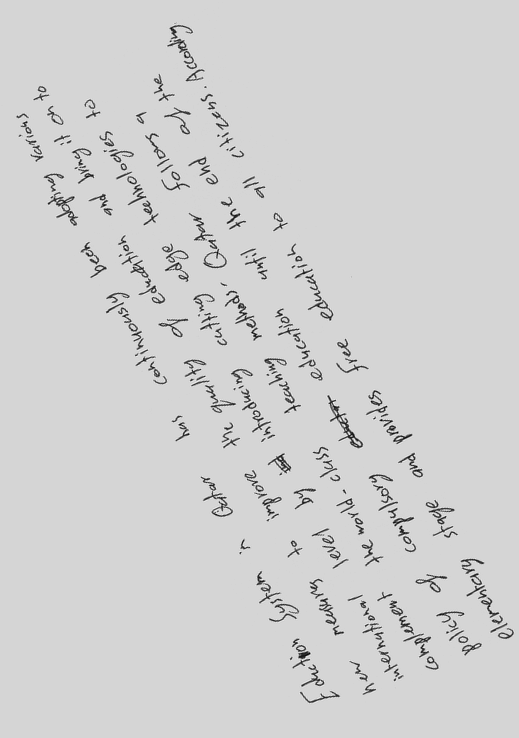 Eduction System in Qatar has continuously been adopting various
new measures to improve the quality of education and bring it on to
international level by introducing cutting edge technologies to
complement the world-class teaching methods. Qatar follows a
policy of compulsory education until the end of the
elementary stage and provides free education to all citizens. According